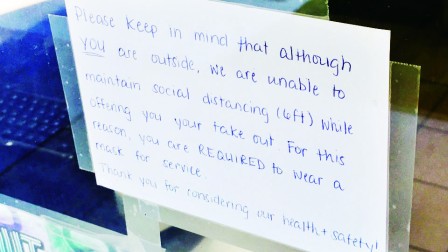 Please keep in mind that although
you are outside, we are unable to
maintain social distancing (6ft) while
offering you your take out For this
reason, you are REQUIRED to wear a
mask for service.
Thank you for considering our health + safety!